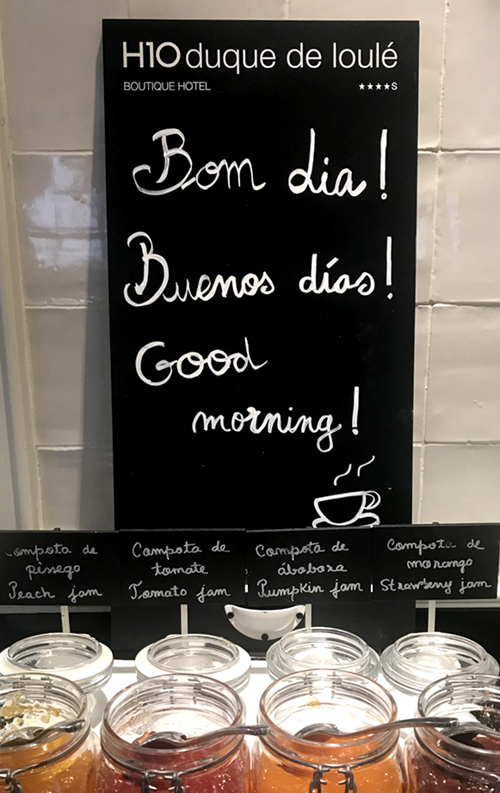 H10 duque de loulé
BOUTIQUE HOTEL ★★★★S
Bom dia!
Buenos días!
Good
morning!
Compota de
pêssego
Peach jam
Compota de
tomate
Tomato jam
Compota de
ábobora
Pumpkin jam
Compota de
morango
Strawberry jam